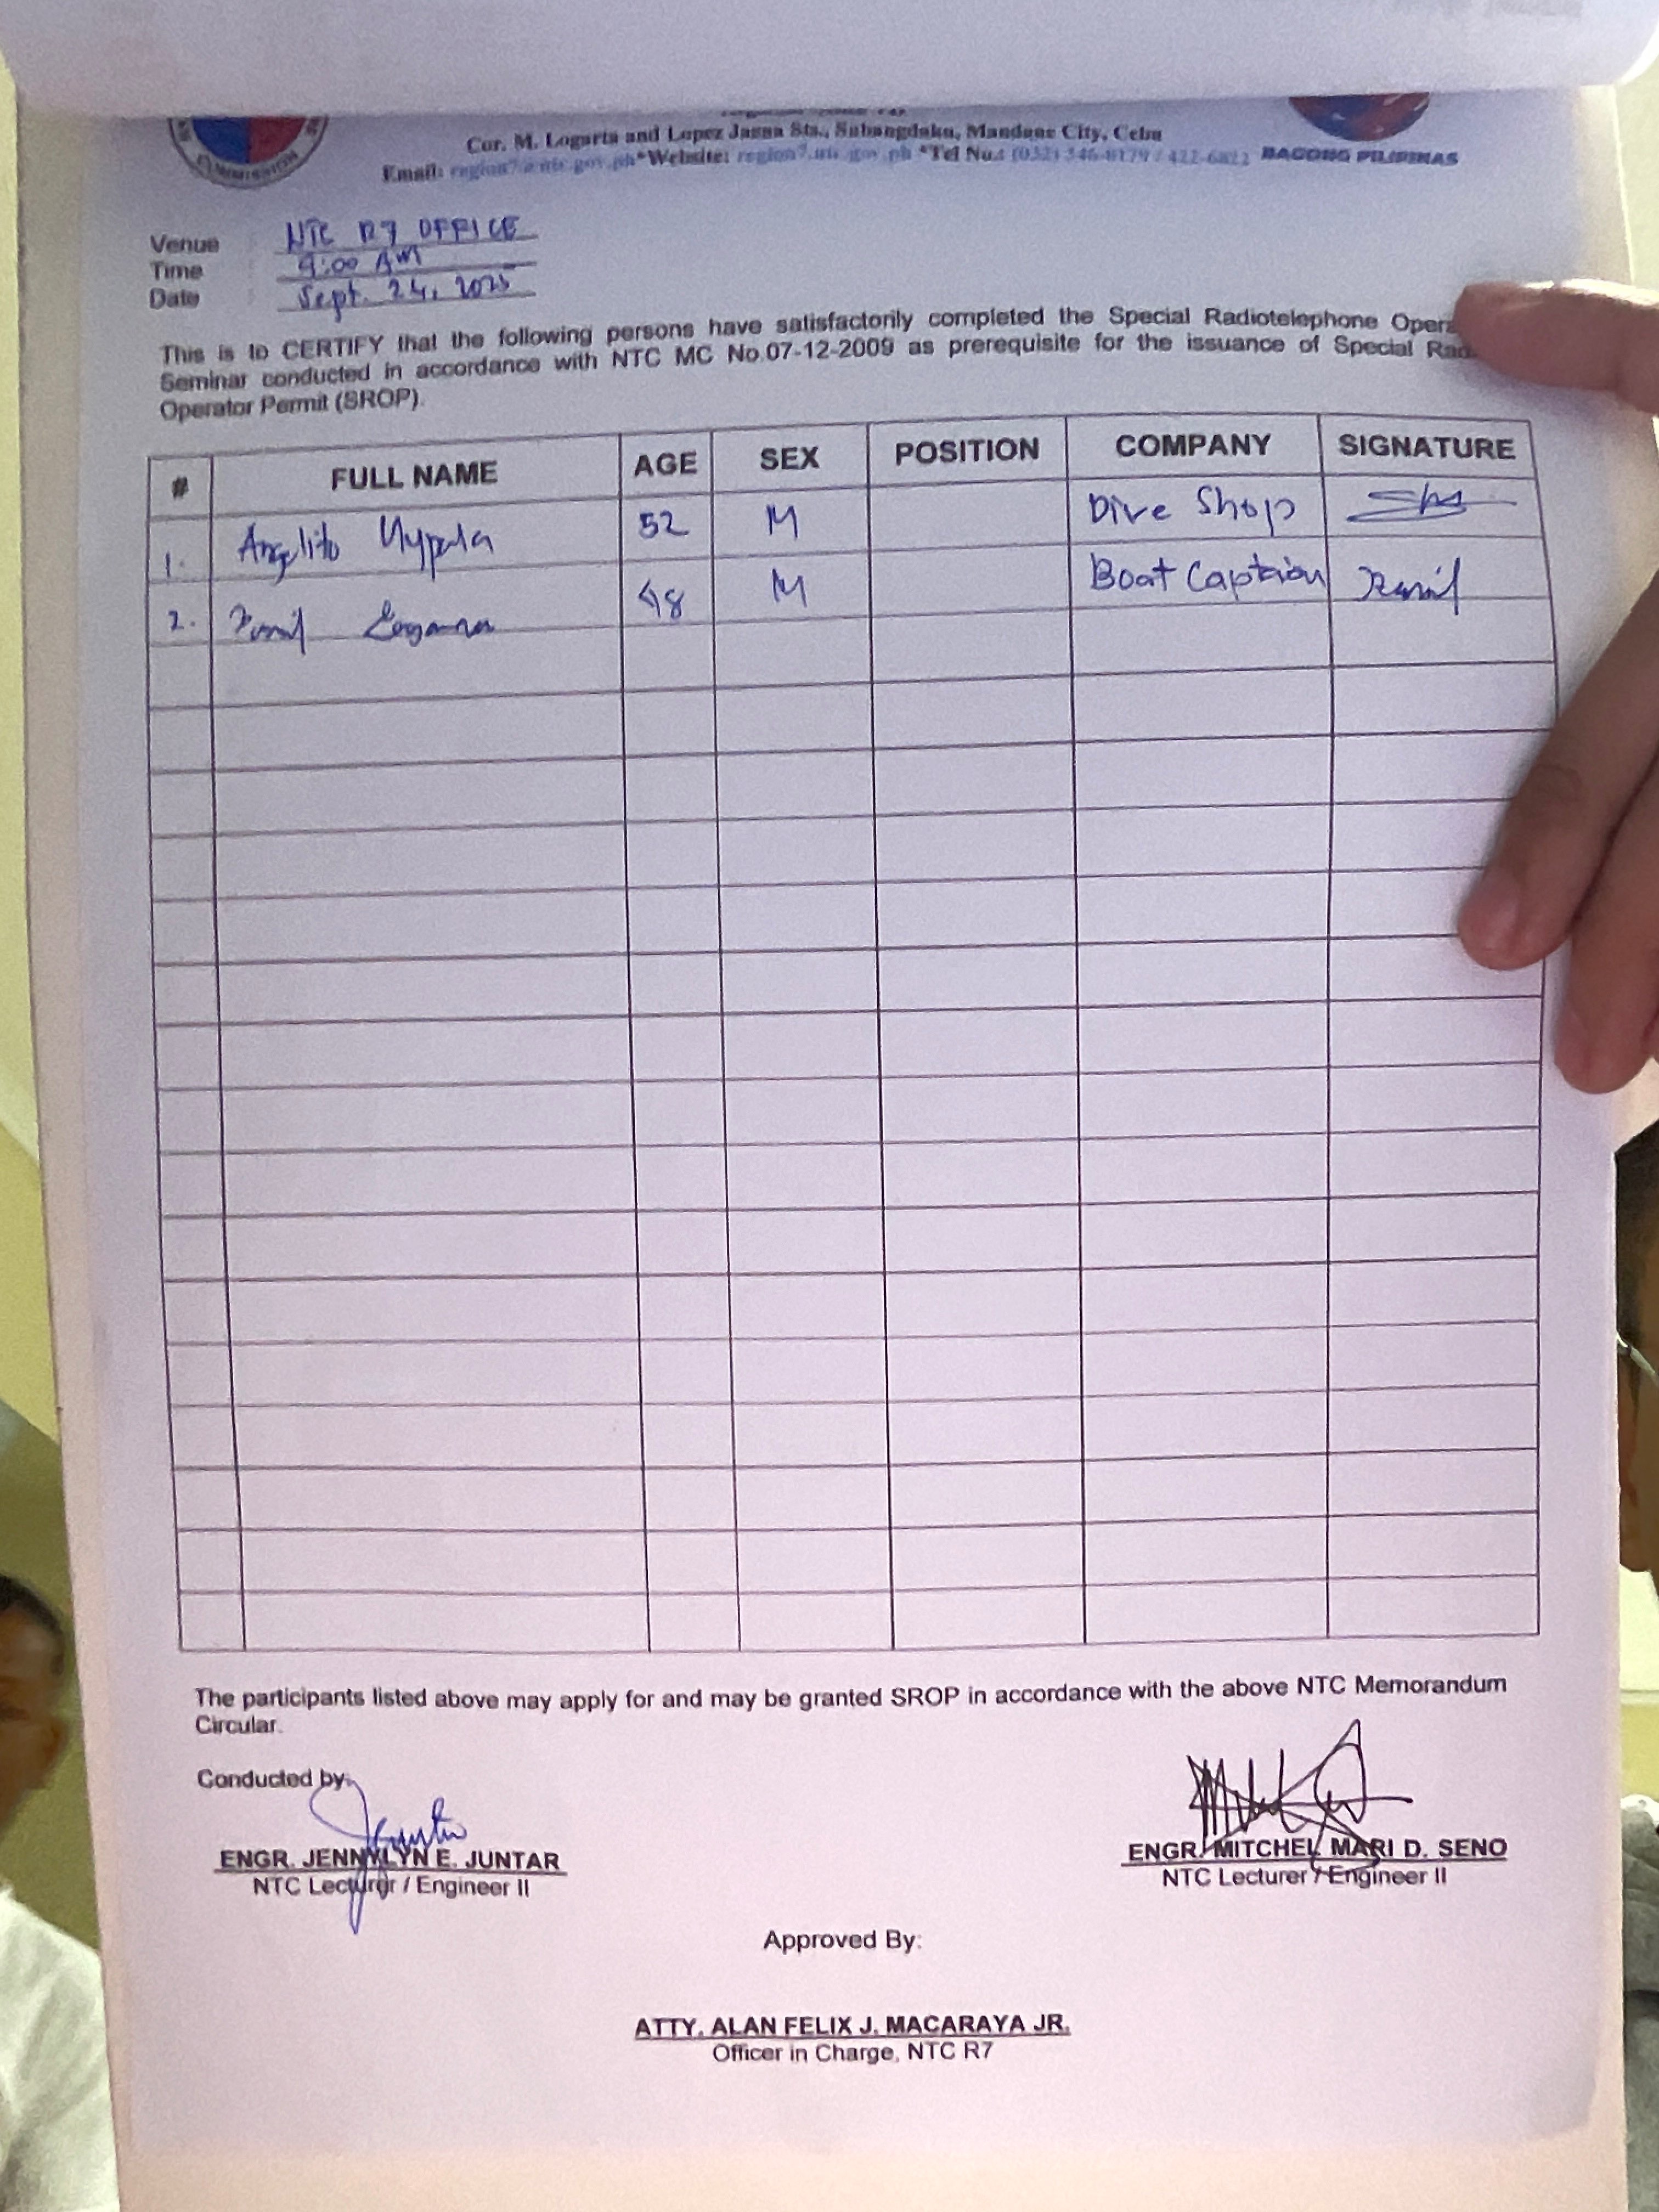 COMMISSION
Cor. M. Logarta and Lopez Jaena Sts., Subangdaku, Mandaue City, Cebu
Email: region7@ntc.gov.ph*Website: region7.ntc.gov.ph *Tel No.: (032) 346-0179 / 422-6822
BAGONG PILIPINAS
Venue : NTC R7 OFFICE
Time : 9:00 AM
Date : Sept. 24, 2025
This is to CERTIFY that the following persons have satisfactorily completed the Special Radiotelephone Opera
Seminar conducted in accordance with NTC MC No.07-12-2009 as prerequisite for the issuance of Special Rad
Operator Permit (SROP).
# FULL NAME AGE SEX POSITION COMPANY SIGNATURE
1. Angelito 52 M Dive Shop
2. 48 M Boat Captain
The participants listed above may apply for and may be granted SROP in accordance with the above NTC Memorandum
Circular.
Conducted by:
ENGR. JENNYLYN E. JUNTAR
NTC Lecturer / Engineer II
ENGR. MITCHEL MARI D. SENO
NTC Lecturer / Engineer II
Approved By:
ATTY. ALAN FELIX J. MACARAYA JR.
Officer in Charge, NTC R7